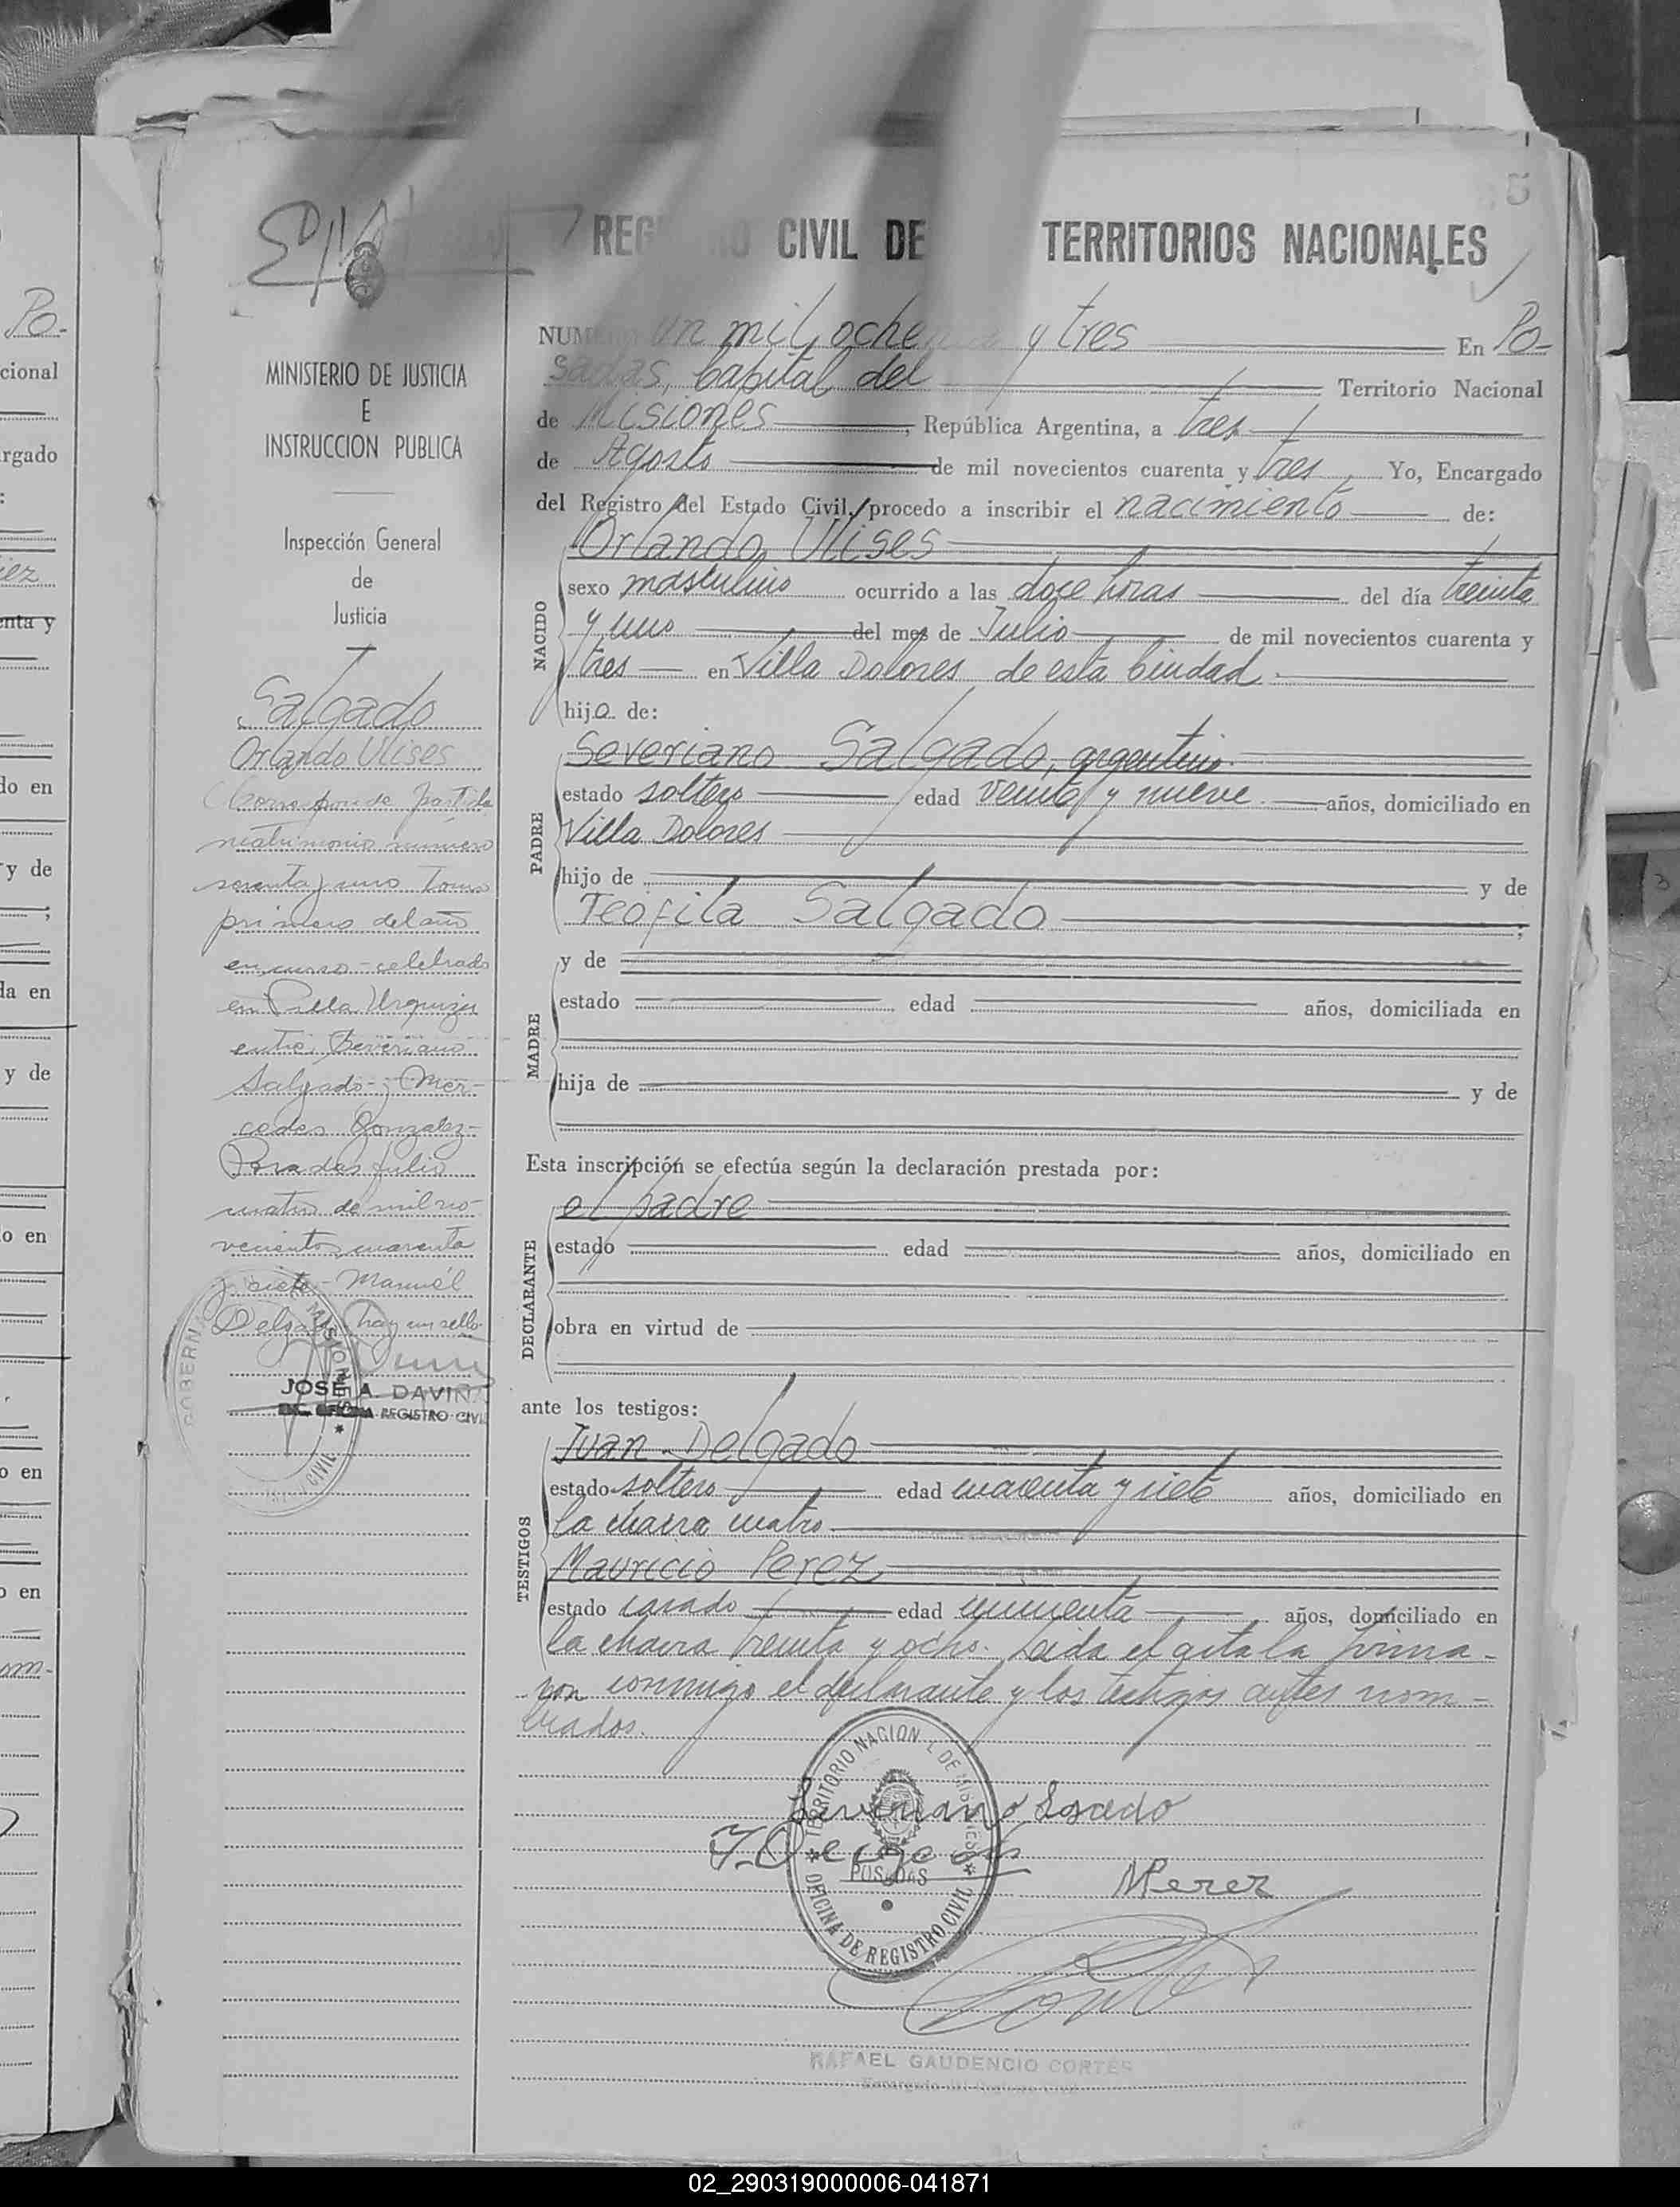 REG O CIVIL DE TERRITORIOS NACIONALES
NUM un mil, oche y tres En Po-
sadas, Capital del Territorio Nacional
de Misiones, República Argentina, a tres
de Agosto de mil novecientos cuarenta y tres Yo, Encargado
del Registro del Estado Civil, procedo a inscribir el nacimiento de:
NACIDO
Orlando Ulises
sexo masculino ocurrido a las doce horas del día treinta
y uno del mes de Julio de mil novecientos cuarenta y
tres en Villa Dolores de esta Ciudad.
hijo de:
PADRE
Severiano Salgado, argentino.
estado soltero edad veinte y nueve años, domiciliado en
Villa Dolores
hijo de y de
Teófila Salgado ;
MADRE
y de
estado edad años, domiciliada en
hija de y de
Esta inscripción se efectúa según la declaración prestada por:
DECLARANTE
el padre
estado edad años, domiciliado en
obra en virtud de
ante los testigos:
TESTIGOS
Juan Delgado
estado soltero edad cuarenta y siete años, domiciliado en
la chacra cuatro
Mauricio Perez
estado casado edad cincuenta años, domiciliado en
la chacra treinta y ocho. Leida el acta la firma-
ron conmigo el declarante y los testigos antes nom-
brados.
TERRITORIO NACION L DE MISIONES
POSADAS
OFICINA DE REGISTRO CIVIL
Severiano
Merez
RAFAEL GAUDENCIO CORTÉS
MINISTERIO DE JUSTICIA
E
INSTRUCCION PUBLICA
Inspección General
de
Justicia
Salgado
Orlando Ulises
Corresponde partida
matrimonio numero
y uno tomo
primero del año
en curso - celebrado
en Villa Urquiza
entre Severiano
Salgado y Mer-
cedes Gonzalez-
Posadas Julio
cuatro de mil no-
vecientos cuarenta
y siete - Manuel
Delgado hay un sello
GOBERNA MISIONES CIVIL
JOSE A. DAVIÑA
ENC. OFICINA REGISTRO CIVIL
Po-
cional
rgado
:
ez
enta y
do en
y de
;
da en
y de
o en
o en
o en
om-
02_290319000006-041871